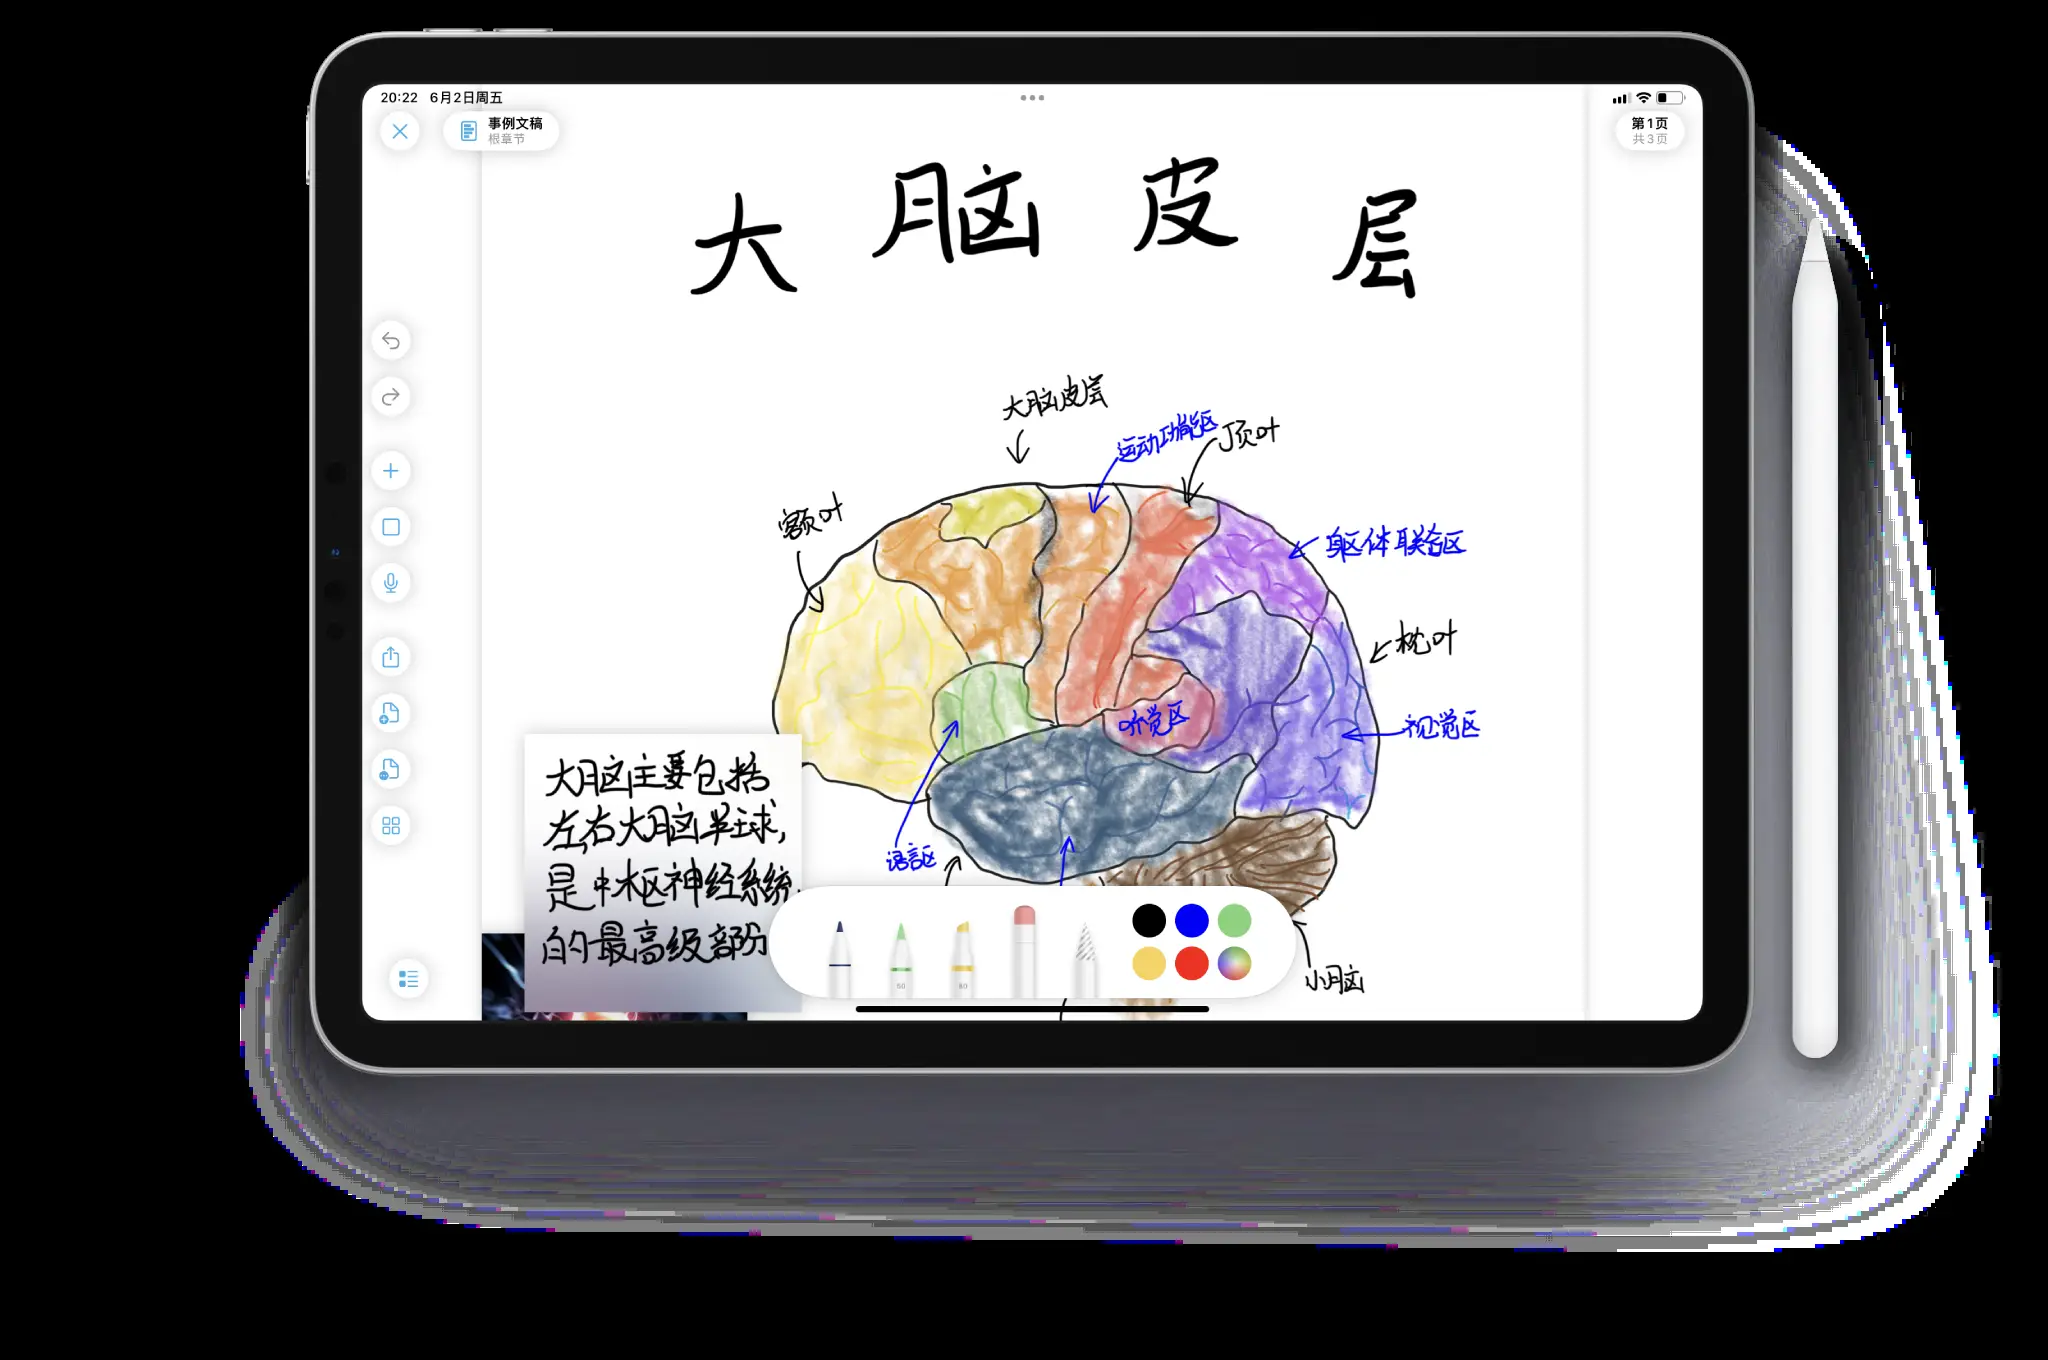 20:22 6月2日周五
事例文稿
根章节
第1页
共3页
大脑皮层
大脑皮层
运动功能区
顶叶
额叶
躯体联合区
枕叶
听觉区
视觉区
大脑主要包括
左右大脑半球,
是中枢神经系统
的最高级部分
语言区
小脑
50
80